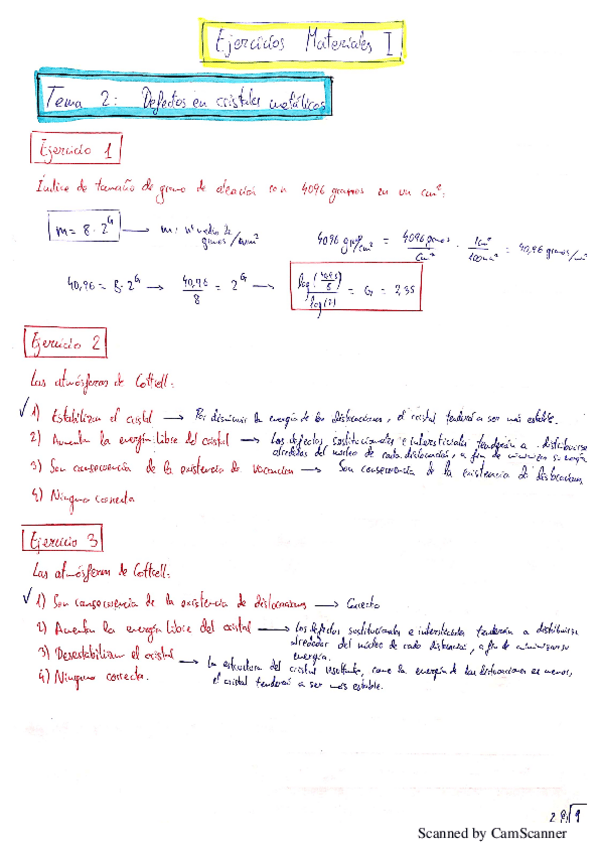 Ejercicios Materiales I
Tema 2: Defectos en cristales metálicos
Ejercicio 1
Índice de tamaño de grano de aleación con 4096 granos en un cm²:
m = 8 · 2^G → m: nº medio de granos/mm²
4096 gra/cm² = 4096 granos / cm² · 1cm² / 100mm² = 40,96 granos/mm²
40,96 = 8 · 2^G → 40,96 / 8 = 2^G → log(40,96 / 8) / log(2) = G = 2,35
Ejercicio 2
Las atmósferas de Cottrell:
✓ 1) Estabilizan el cristal → Por disminuir la energía de las dislocaciones, el cristal tenderá a ser más estable.
2) Aumentan la energía libre del cristal → Los defectos sustitucionales e intersticiales tenderán a distribuirse
alrededor del núcleo de cada dislocación, a fin de minimizar su energía
3) Son consecuencia de la existencia de vacancias → Son consecuencia de la existencia de dislocaciones
4) Ninguna correcta
Ejercicio 3
Las atmósferas de Cottrell:
✓ 1) Son consecuencia de la existencia de dislocaciones → Correcto
2) Aumentan la energía libre del cristal → Los defectos sustitucionales e intersticiales tenderán a distribuirse
alrededor del núcleo de cada dislocación, a fin de minimizar su
energía.
3) Desestabilizan el cristal → La estructura del cristal resultante, como la energía de las dislocaciones es menor,
4) Ninguna correcta.
el cristal tenderá a ser más estable.
Scanned by CamScanner